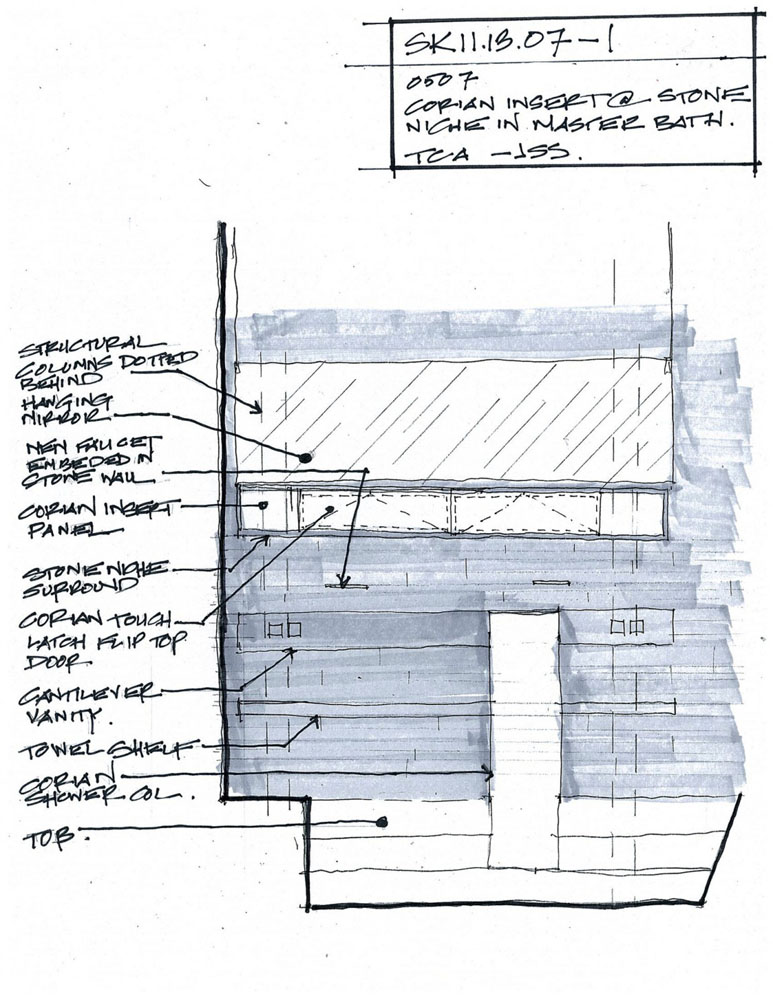 SK11.13.07-1
0507
CORIAN INSERT @ STONE
NICHE IN MASTER BATH.
TCA -JSS.
STRUCTURAL
COLUMNS DOTTED
BEHIND
HANGING
MIRROR
NEW FAUCET
EMBEDED IN
STONE WALL
CORIAN INSERT
PANEL
STONE NICHE
SURROUND
CORIAN TOUCH
LATCH FLIP TOP
DOOR
CANTILEVER
VANITY.
TOWEL SHELF
CORIAN
SHOWER COL.
TOB.